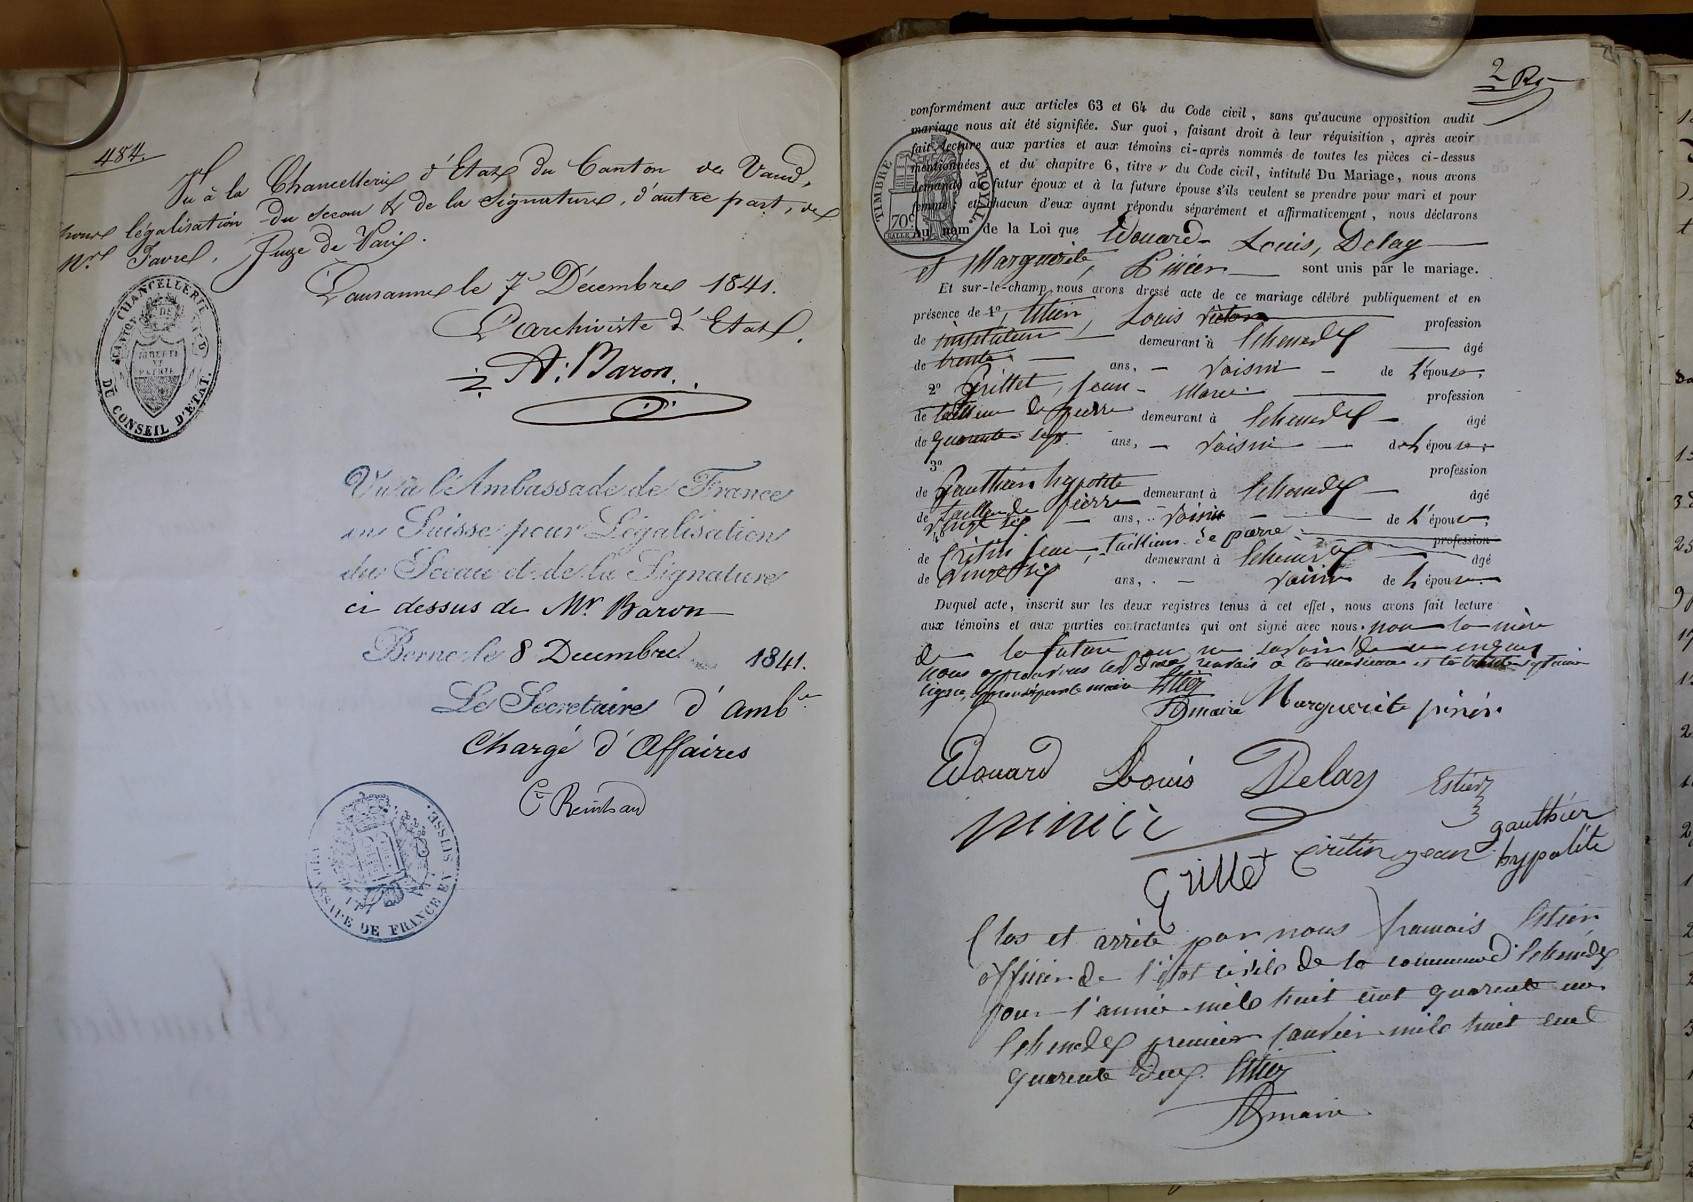 484.
Vu à la Chancellerie d'Etat du Canton de Vaud,
pour légalisation du sceau & de la signature, d'autre part, de
Mr. Favre, Juge de Paix.
Lausanne le 7 Décembre 1841.
L'archiviste d'Etat,
A. Baron.
CHANCELLERIE
CANTON DE VAUD
LIBERTÉ
ET
PATRIE
DU CONSEIL D'ETAT.
Vu à l'Ambassade de France
en Suisse pour Légalisation
du Sceau et de la Signature
ci dessus de Mr Baron
Berne le 8 Decembre 1841.
Le Secretaire d'amb.de
Chargé d'Affaires
AMBASSADE DE FRANCE EN SUISSE.
2
conformément aux articles 63 et 64 du Code civil, sans qu'aucune opposition audit
mariage nous ait été signifiée. Sur quoi, faisant droit à leur réquisition, après avoir
fait lecture aux parties et aux témoins ci-après nommés de toutes les pièces ci-dessus
mentionnées, et du chapitre 6, titre v du Code civil, intitulé Du Mariage, nous avons
demandé au futur époux et à la future épouse s'ils veulent se prendre pour mari et pour
femme; et chacun d'eux ayant répondu séparément et affirmativement, nous déclarons
TIMBRE ROYAL.
70c
Au nom de la Loi que Edouard Louis, Delay
et Marguerite, Pinier sont unis par le mariage.
Et sur-le-champ nous avons dressé acte de ce mariage célébré publiquement et en
présence de 1° Estier, Louis Victor profession
de instituteur demeurant à âgé
de trente ans, voisin de l'épouse,
2° Grillet, Jean Marie profession
de tailleur de pierre demeurant à âgé
de quarante sept ans, voisin de l'épouse,
3° profession
de Gauthier hypolite demeurant à âgé
de tailleur de pierre
vingt six ans, voisin de l'épouse,
4°
de Crétin Jean, tailleur de pierre profession
demeurant à âgé
de vingt six ans, voisin de l'épouse
Duquel acte, inscrit sur les deux registres tenus à cet effet, nous avons fait lecture
aux témoins et aux parties contractantes qui ont signé avec nous. non la mère
de la future
Marguerite pinier
Edouard Louis Delay
Estier
pinier
Grillet
crétin jean
gauthier
hypolite
Clos et arrêté par nous francois Estier
officier de l'état civile de la commune d'
pour l'année mile huit cent quarente un.
premier janvier mile huit cent
quarente deux. Estier
maire